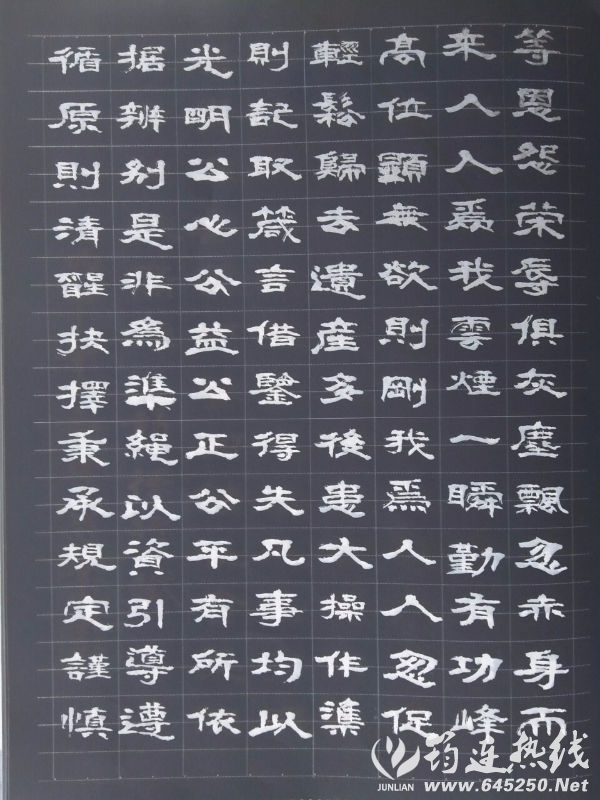 等恩怨荣辱俱灰塵飄忽赤身而
来人人為我雲煙一瞬勤有功峰
高位顯無欲則剛我為人人忽促
輕鬆歸去遺產多後患大操作準
則記取箴言借鑒得失凡事均以
光明公心公益公正公平有所依
据辨别是非為準繩以資引導遵
循原則清醒抉擇秉承規定謹慎
筠连热线
JUNLIAN www.645250.Net